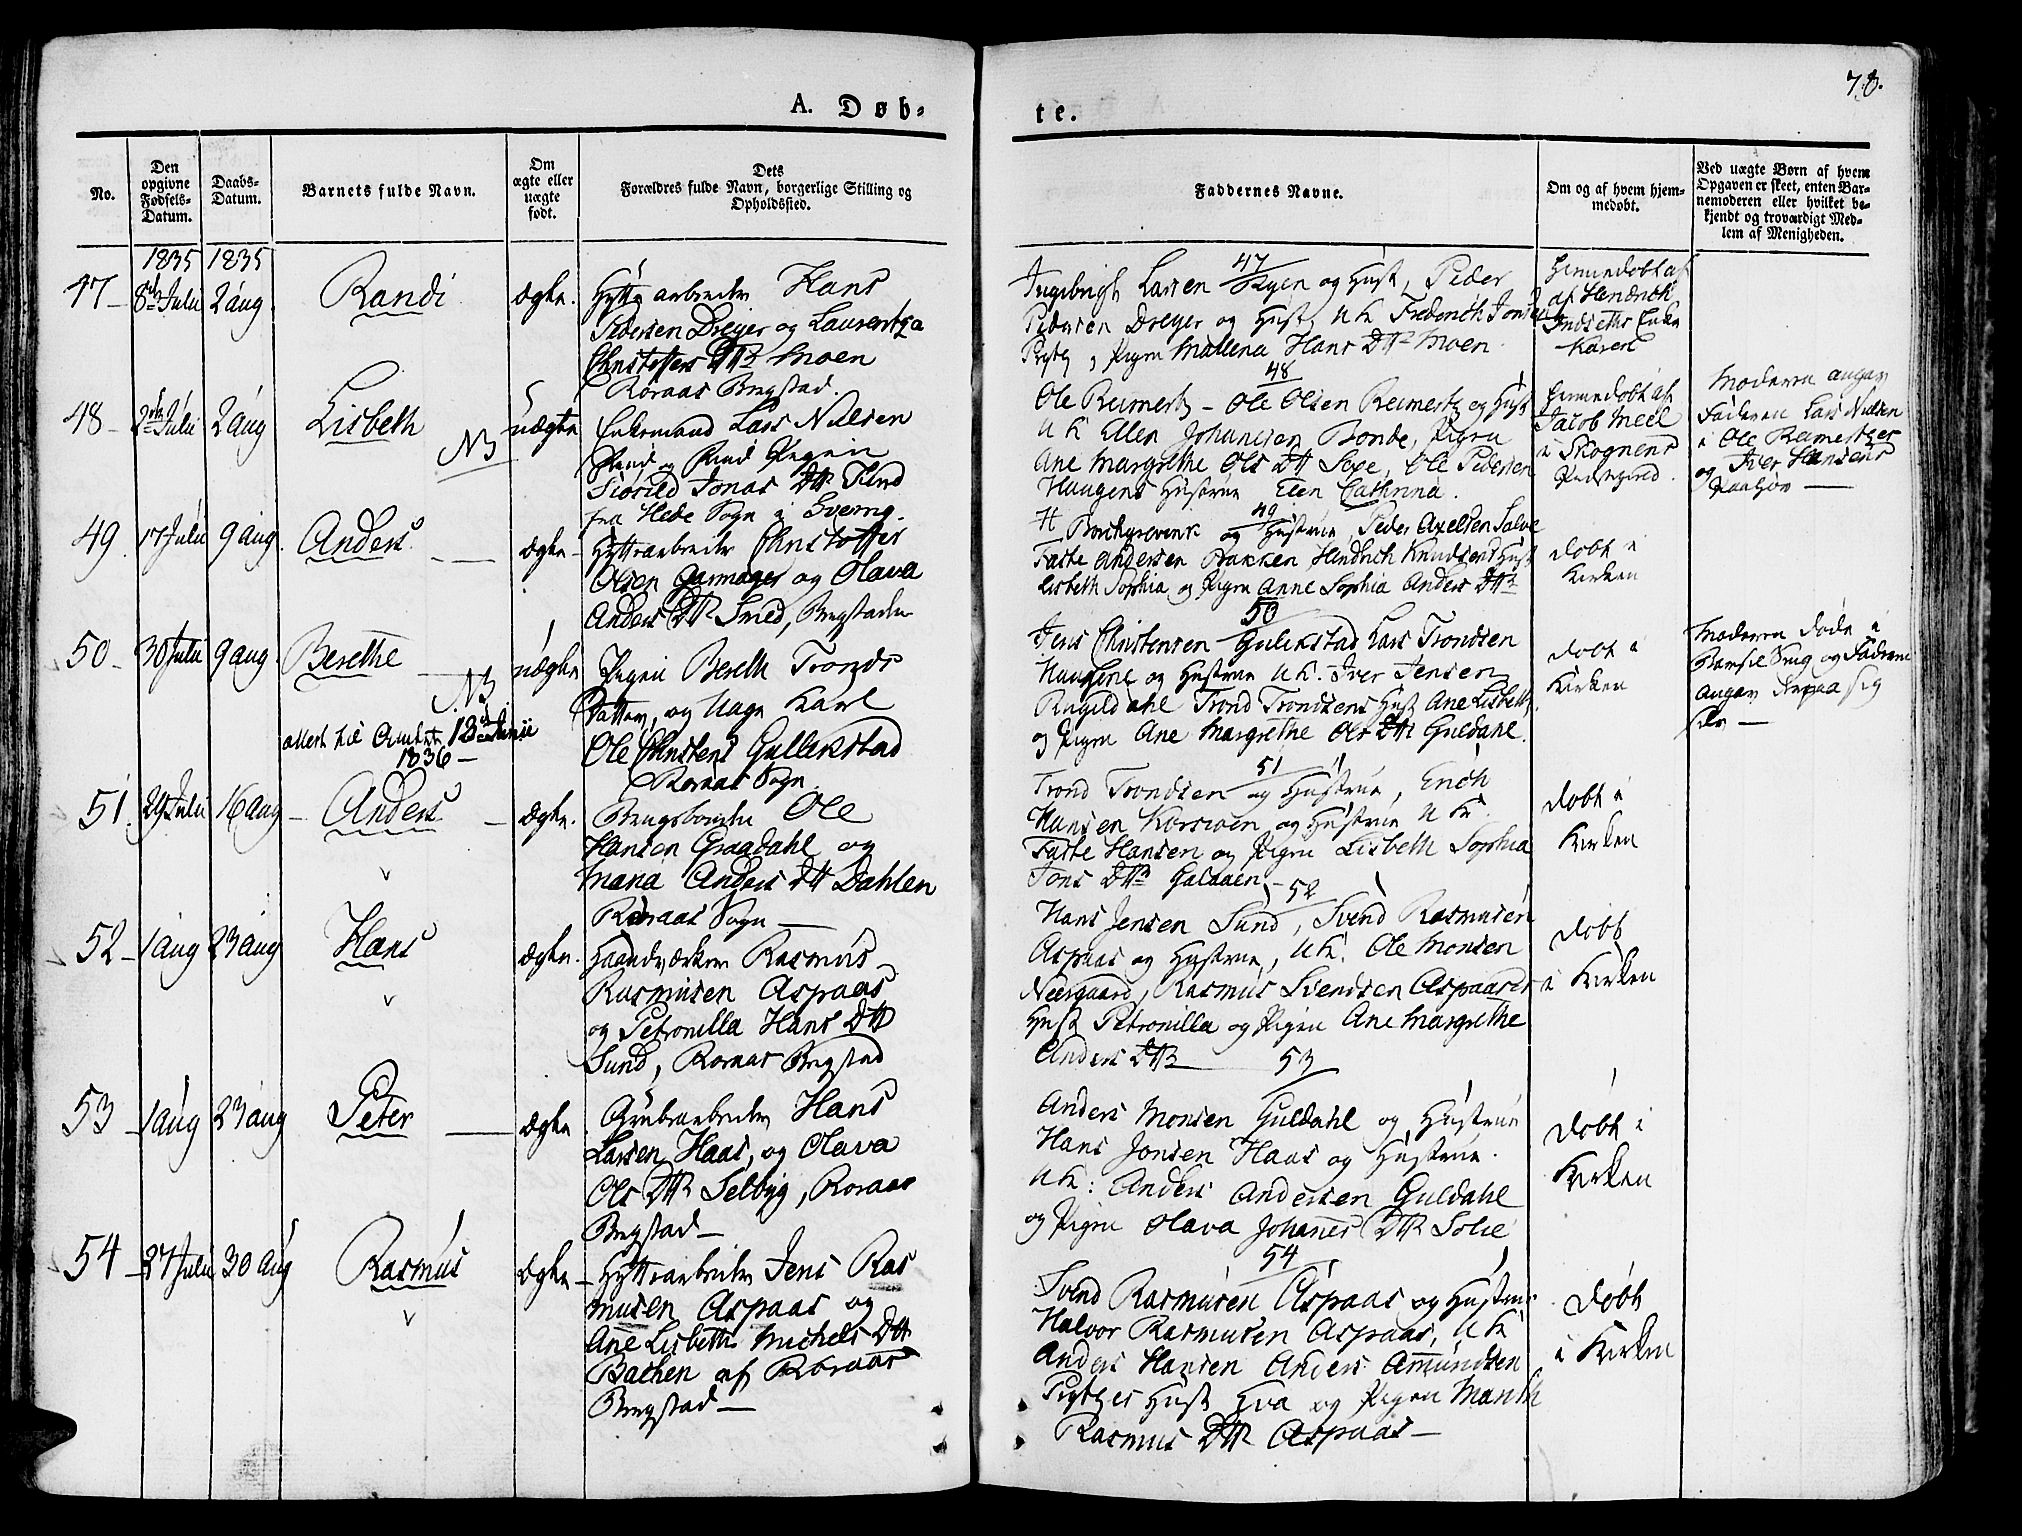 78.
A. Døb-
te.
No.
Den opgivne Fødsels-Datum.
Daabs-Datum.
Barnets fulde Navn.
Om ægte eller uægte født.
Dets Forældres fulde Navn, borgerlige Stilling og Opholdssted.
Faddernes Navne.
Om og af hvem hjem-medøbt.
Ved uægte Børn af hvem Opgaven er skeet, enten Bar-nemoderen eller hvilket be-kjendt og troværdigt Med-lem af Menigheden.
1835 1835
47 8de Julii 2 aug Randi ægte. Hytte arbeider Hans
Pedersen Dreyer og Laurentza
Christoffers Dtt Moen
Røraas Bergstad.
47
Ingebrigt Larsen og Hust, Peder
Pedersen Dreyer og Hust, UK Frederich Jonsen
Pigen Mallena Hans Dtt Moen.
Hiemmedøbt af
af Hendrich
Indseths Enke
Karen
48 2de Julii 2 aug Lisbeth uægte Enkemand Lars Nielsen
NB
Sund og Pigen
Siorild Jonas Dtt
fra Hede Sogn i Sverrig.
48
Ole Reimertz - Ole Olsen Reimertz og Hust
UK Ellen Johannesen Bonde, Pigen
Ane Margrethe Ols Dtt Sexe, Ole Pedersen
Haugens Hustrue Elen Cathrina.
Hiemmedøbt af
Jacob Meel
i Skognens
Præstegield.
Moderen angav
Faderen Lars Nielsen
i Ole Reimertzes
og Iver Hansens
Paahør
49. 17 Julii 9 aug. Anders ægte Hytteearbeider Christoffer
Olsen Garmager og Olava
Anders Dtt Smed, Bergstaden
49
H Borchgrevink og Hustrue, Peder Axelsen Salve
Faste Andersen Bakken Hendrich Knudsens Hust
Lisbeth Sophia og Pigen Anne Sophia Anders Dtt
døbt i
Kirken
50 30 Julii 9 aug Berethe uægte Pigen Bereth Tronds
NB
Datter, og Unge Karl
attest til Amtet 13de Junii
1836
Ole Christens Gullikstad
Røraas Sogn.
50
Jens Christensen Gulikstad Lars Trondsen
Haugene og Hustrue UK. Iver Jensen
Rugeldahl Trond Trondsens Hust Ane Lisbeth,
og Pigen Ane Margrethe Ols Dtt Guldahl.
døbt i
Kirken
Moderen døde i
Barsel Seng og Faderen
angav sig
selv
51. 29 Julii 16 aug Anders ægte. Brugsbonden Ole
Hansen Graadahl og
Maria Anders Dtt Dahlen
Røraas Sogn
51
Trond Trondsen og Hustrue, Erich
Hansen Korsvoen og Hustrue UK.
Faste Hansen og Pigen Lisbeth Sophia
Jons Dtt Galaaen
døbt i
Kirken
52 1 aug 23 aug Hans ægte. Haandværker Rasmus
Rasmusen Aspaas
og Petronilla Hans Dtt
Sund, Roraas Bergstad
52
Hans Jensen Sund, Svend Rasmusen
Aspaas og Hustrue, UK. Ole Monsen
Neergaard, Rasmus Svendsen Aspaases
Hust Petronilla og Pigen Ane Margrethe
Anders Dtt
døbt
i Kirken
53 1 aug 23 aug Peter ægte Grubearbeider Hans
Larsen Haas, og Olava
Ols Dtt Selbyg, Roraas
Bergstad
53
Anders Monsen Guldahl og Hustrue
Hans Jonsen Haas og Hustrue.
UK: Anders Andersen Guldahl
og Pigen Olava Johannes Dtt Solie
døbt i
Kirken
54 27 Julii 30 aug Rasmus ægte Hyttearbeider Jens Ras
musen Aspaas og
Ane Lisbeth Michels Dtt
Bachen af Røraas
Bergstad
54
Svend Rasmusen Aspaas og Hustrue
Halvor Rasmusen Aspaas, UK
Anders Hansen Anders Amundsen
Hust Eva og Pigen Marith
Rasmus Dtt Aspaas
døbt
i Kirken